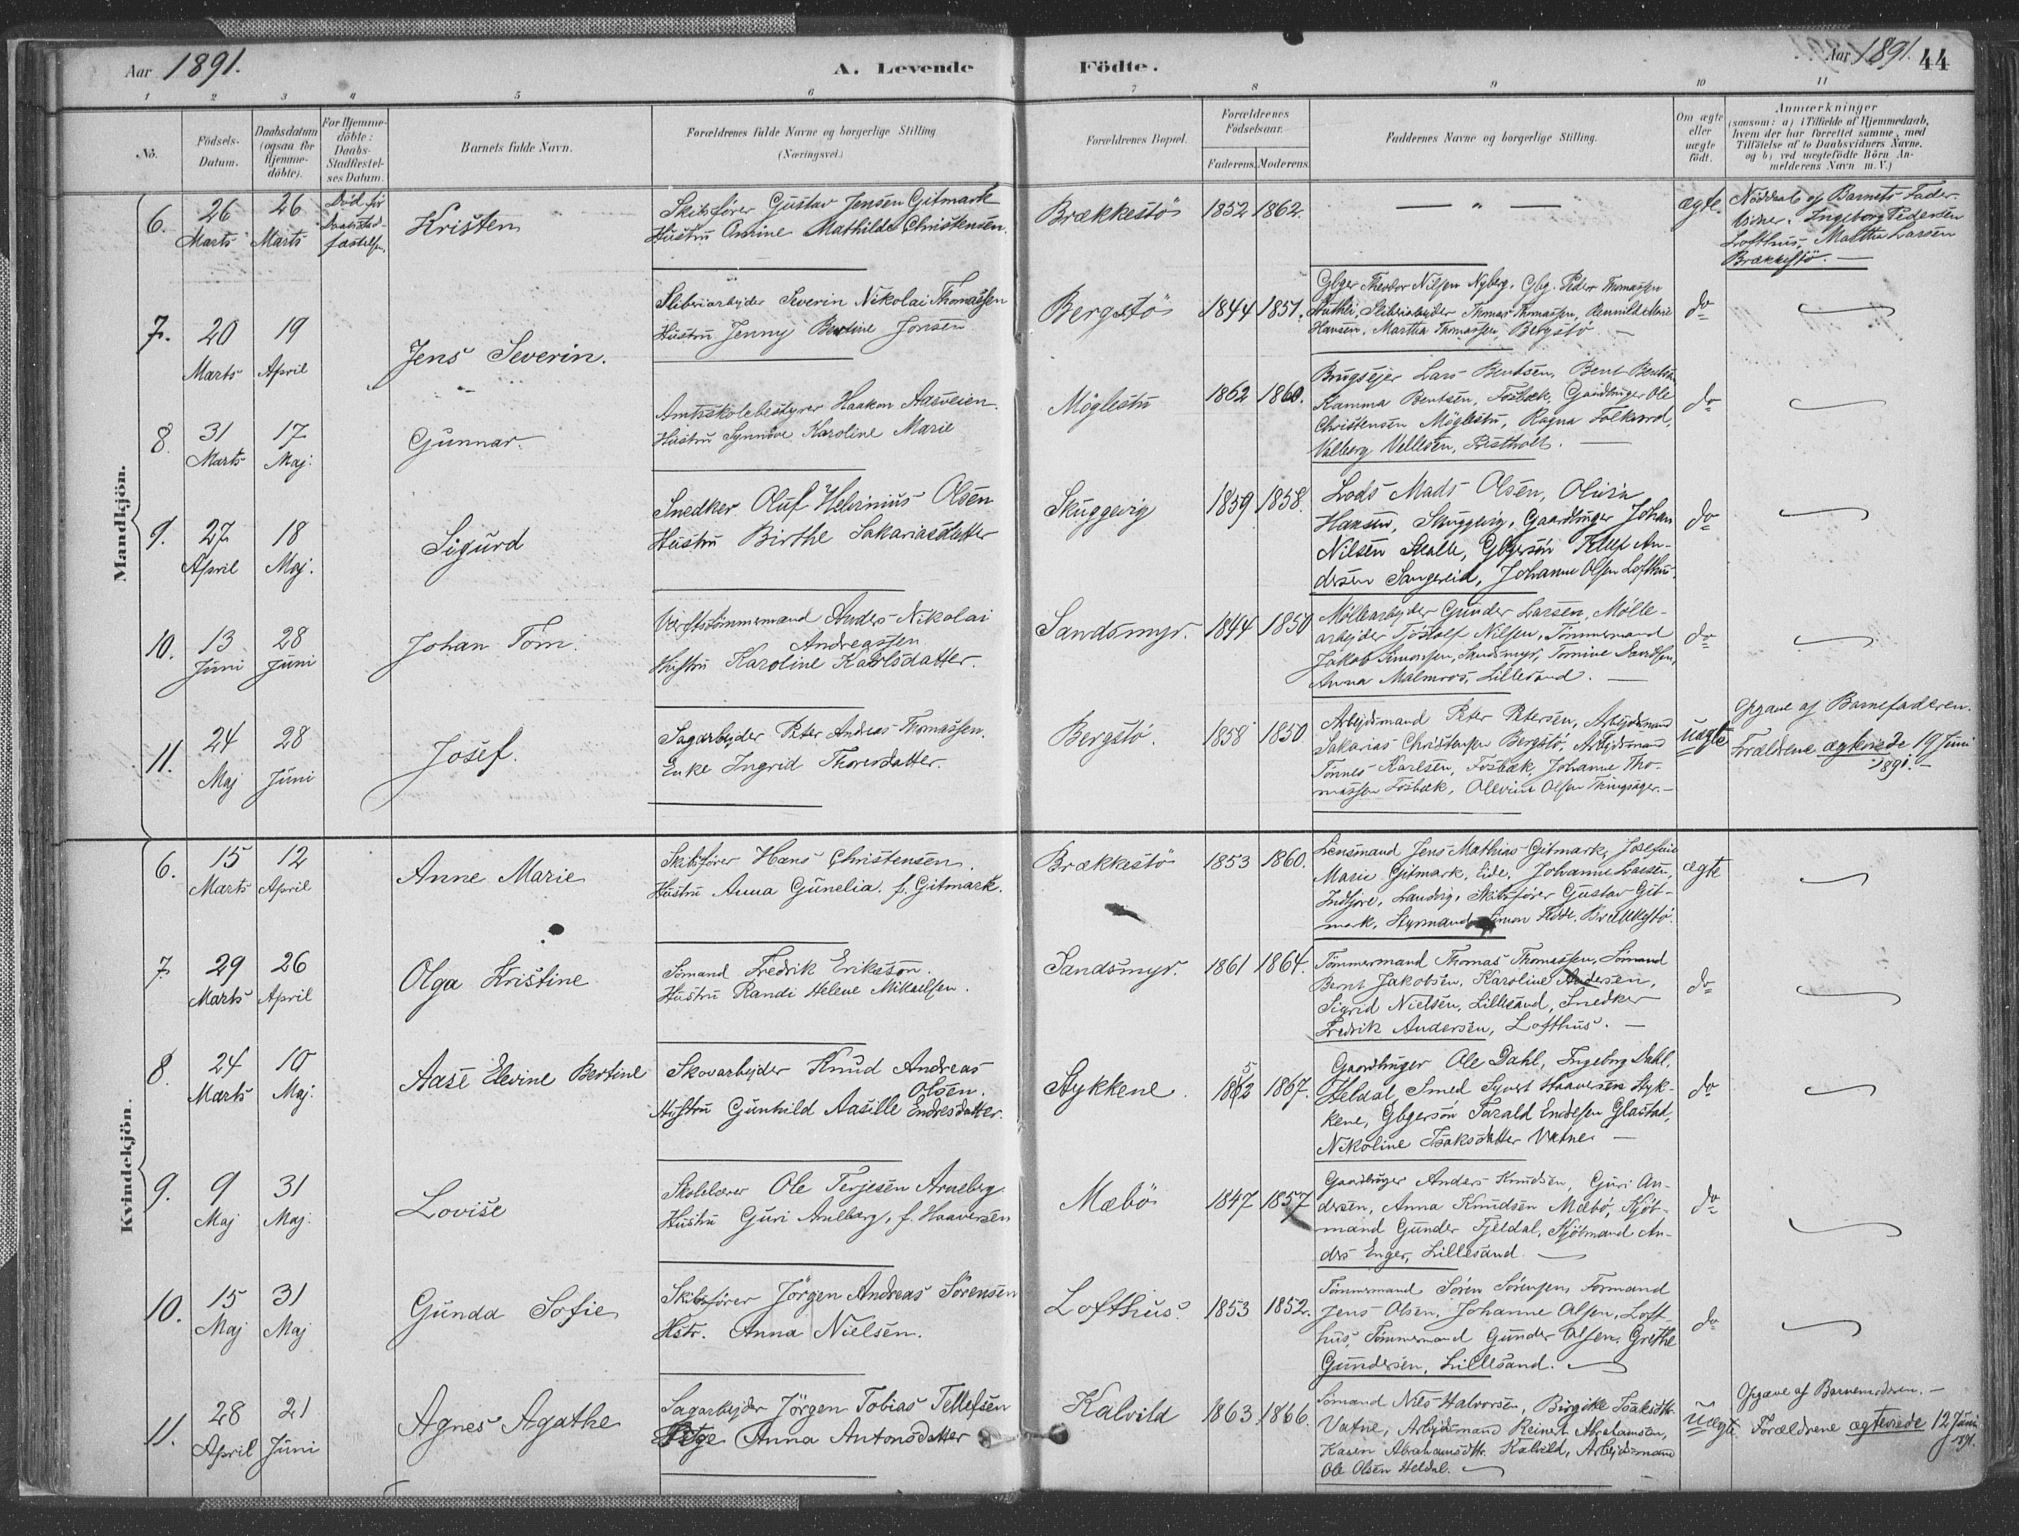 Aar 1891.
A. Levende
Födte.
Aar 1891. 44
1 2 3 4 5 6 7 8 9 10 11
No.
Födsels-
Datum.
Daabsdatum
(ogsaa for
Hjemme-
döbte).
For Hjemme-
döbte:
Daabs-
Stadfæstel-
ses Datum.
Barnets fulde Navn.
Forældrenes fulde Navne og borgerlige Stilling
(Næringsvei.)
Forældrenes Bopæl.
Forældrenes
Fødselsaar.
Faderens. Moderens.
Faddernes Navne og borgerlige Stilling.
Om ægte
eller
uægte
født.
Anmærkninger
(saasom: a) i Tilfælde af Hjemmedaab,
hvem der har forrettet samme, med
Tilföielse af to Daabsvidners Navne,
og b) ved uægtefödte Börn An-
melderens Navn m. V.)
Mandkjön.
6. 26 Marts 26 Marts
Död før
Daabsstad-
fæstelsen.
Kristen
Skibsfører Gustav Jensen Gitmark
Hustru Omine Mathilde Christensen.
Brækkestö 1852 1862.
— " —
ægte.
Nöddaab af Barnets Fader
Vidner: Ingeborg Pedersen
Lofthus, Martha Larsen
Brækkestö. —
7. 20 Marts 19 April
Jens Severin.
Sliberiarbejder Severin Nikolai Thomassen
Hustru Jenny Bertine Jonsen
Bergstö 1844 1851.
Gbger Theodor Nilsen Nyberg, Gbg. Peder Thomassen
Sliberiarbejder Thomas Thomassen, Marie
Hansen, Martha Thomassen, Bergstö —
do
8. 31 Marts 17 Maj.
Gunnar.
Amtsskolebestyrer Haakon Aasveien.
Hustru Synnöve Karoline Marie
Möglestu 1862 1860.
Brugsejer Lars Bentsen, Bent Bentsen
Kamma Bentsen, Fosbæk, Gaardbruger Ole
Christensen Möglestu, Ragna Folkvord,
Valborg Vellesen, —
do
9. 27 April 18 Maj.
Sigurd
Snedker Oluf Helenius Olsen
Hustru Birthe Sakariasdatter
Skuggevig 1859 1858.
Lods Mads Olsen, Olivia
Hansen, Skuggevig, Gaardbruger Johan
Nilsen Skalle, Gbgersön Tellef An-
dersen Sangereid, Johanne Olsen Lofthus.
do
10. 13 Juni 28 Juni
Johan Tom.
Værftstömmermand Anders Nikolai
Andreassen
Hustru Karoline Karlsdatter.
Sandsmyr. 1844 1850
Möllearbejder Gunder Larsen, Mölle-
arbejder Tostolf Nilsen, Tömmermand
Jakob Simonsen, Sandsmyr, Tomine
Anna Malmros, Lillesand. —
do
11. 24 Maj 28 Juni
Josef.
Sagarbejder Peter Andreas Thomassen.
Enke Ingrid Thoresdatter.
Bergstö. 1858 1850
Arbejdsmand Peter Petersen, Arbejdsmand
Sakarias Christensen Bergstö, Arbejdsmand
Tönnes Karlsen, Fosbæk, Johanne Tho-
massen Fosbæk, Ollevine Olsen Tingsager. —
uægte
Opgave af Barnefaderen.
Forældrene ægteviede 19 Juni
1891. —
Kvindekjön.
6. 15 Marts 12 April
Anne Marie
Skibsfører Hans Christensen
Hustru Anna Gunelia. f. Gitmark.
Brækkestö 1853 1860.
Lensmand Jens Mathias Gitmark, Josefine
Marie Gitmark, Eide, Johanne Larsen,
Indtjore, Landvig, Skibsfører Gustav Git-
mark, Styrmand Simon Brækkestö.
ægte
7. 29 Marts 26 April
Olga Kristine
Sömand Fredrik Eriksson.
Hustru Randi Helene Mikaelsen.
Sandsmyr. 1861 1864.
Tömmermand Thomas Thomassen, Sömand
Bernt Jakobsen, Karoline Andersen,
Sigrid Nielsen, Lillesand, Snedker
Fredrik Andersen, Lofthus. —
do
8. 24 Marts 10 Maj.
Aase Elevine Bertine
Skovarbejder Knud Andreas
Olsen.
Hustru Gunhild Aasille Endresdatter.
Stykkene. 1852 1867.
Gaardbruger Ole Dahl, Ingeborg Dahl,
Heldal, Smed Syvert Haaversen Styk-
kene, Gbgersön Tarald Endresen Glastad,
Nikoline Isaksdatter Vatne. —
do
9. 9 Maj 31 Maj.
Lovise
Skolelærer Ole Terjesen Arneberg.
Hustru Guri Arneberg, f. Haaversen
Mæbö 1847 1857
Gaardbruger Anders Knudsen, Guri An-
dersen, Anna Knudsen Mæbö, Kjöb-
mand Gunder Fjeldal, Kjöbmand An-
ders Enger, Lillesand —
do
10. 15 Maj 31 Maj
Gunda Sofie
Skibsfører Jörgen Andreas Sörensen
Hstr. Anna Nielsen.
Lofthus. 1853 1852.
Tömmermand Sören Sörensen, Formand
Jens Olsen, Johanne Olsen, Loft-
hus, Tömmermand Gunder Olsen, Grethe
Gundersen, Lillesand.
do
11. 28 April 21 Juni
Agnes Agathe
Sagarbejder Jörgen Tobias Tellefsen
Pige Anna Antonsdatter
Kalvild 1863 1866.
Sömand Nils Halvorsen, Birgitte Isaksdtr.
Vatne, Arbejdsmand Reinert Abrahamsen,
Karen Abrahamsdtr. Kalvild, Arbejdsmand
Ole Olsen Heldal.
uægte
Opgave af Barnemoderen. —
Forældrene ægteviede 12 Juni
1891.